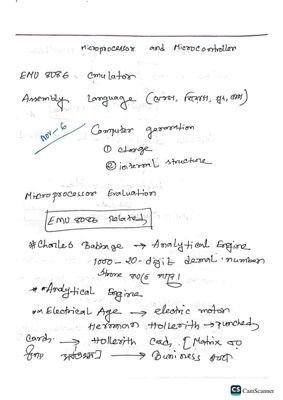 Microprocessor and Microcontroller
EMU 8086 emulator
Assembly Language
Nov-6
Computer generation
① change
② internal structure
Microprocessor Evaluation
EMU 8086 Related
*Charles Babbage → Analytical Engine
1000 - 20-digit decimal number
store করতে পারে।
**Analytical Engine
** Electrical Age → electric motor
Herman Hollerith → punched
Card. → Hollerith Card. [Matrix
→ Business
CS CamScanner